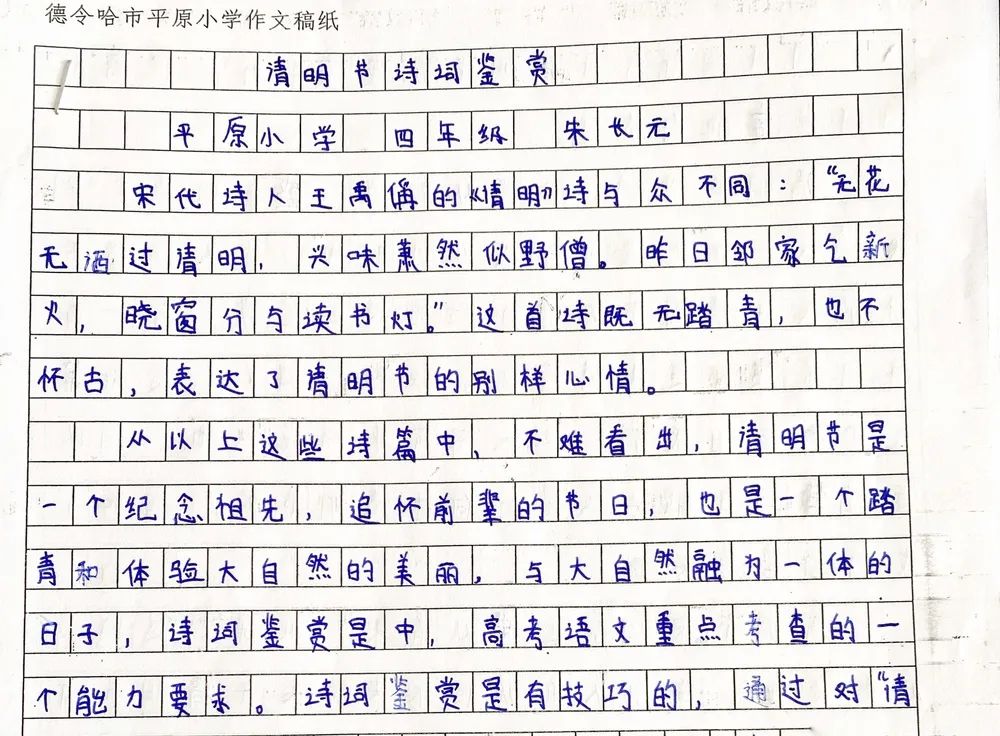 德令哈市平原小学作文稿纸
清明节诗词鉴赏
平原小学 四年级 朱长元
宋代诗人王禹偁的《清明》诗与众不同：“无花
无酒过清明，兴味萧然似野僧。昨日邻家乞新
火，晓窗分与读书灯。”这首诗既无踏青，也不
怀古，表达了清明节的别样心情。
从以上这些诗篇中，不难看出，清明节是
一个纪念祖先，追怀前辈的节日，也是一个踏
青和体验大自然的美丽，与大自然融为一体的
日子，诗词鉴赏是中，高考语文重点考查的一
个能力要求。诗词鉴赏是有技巧的，通过对“清